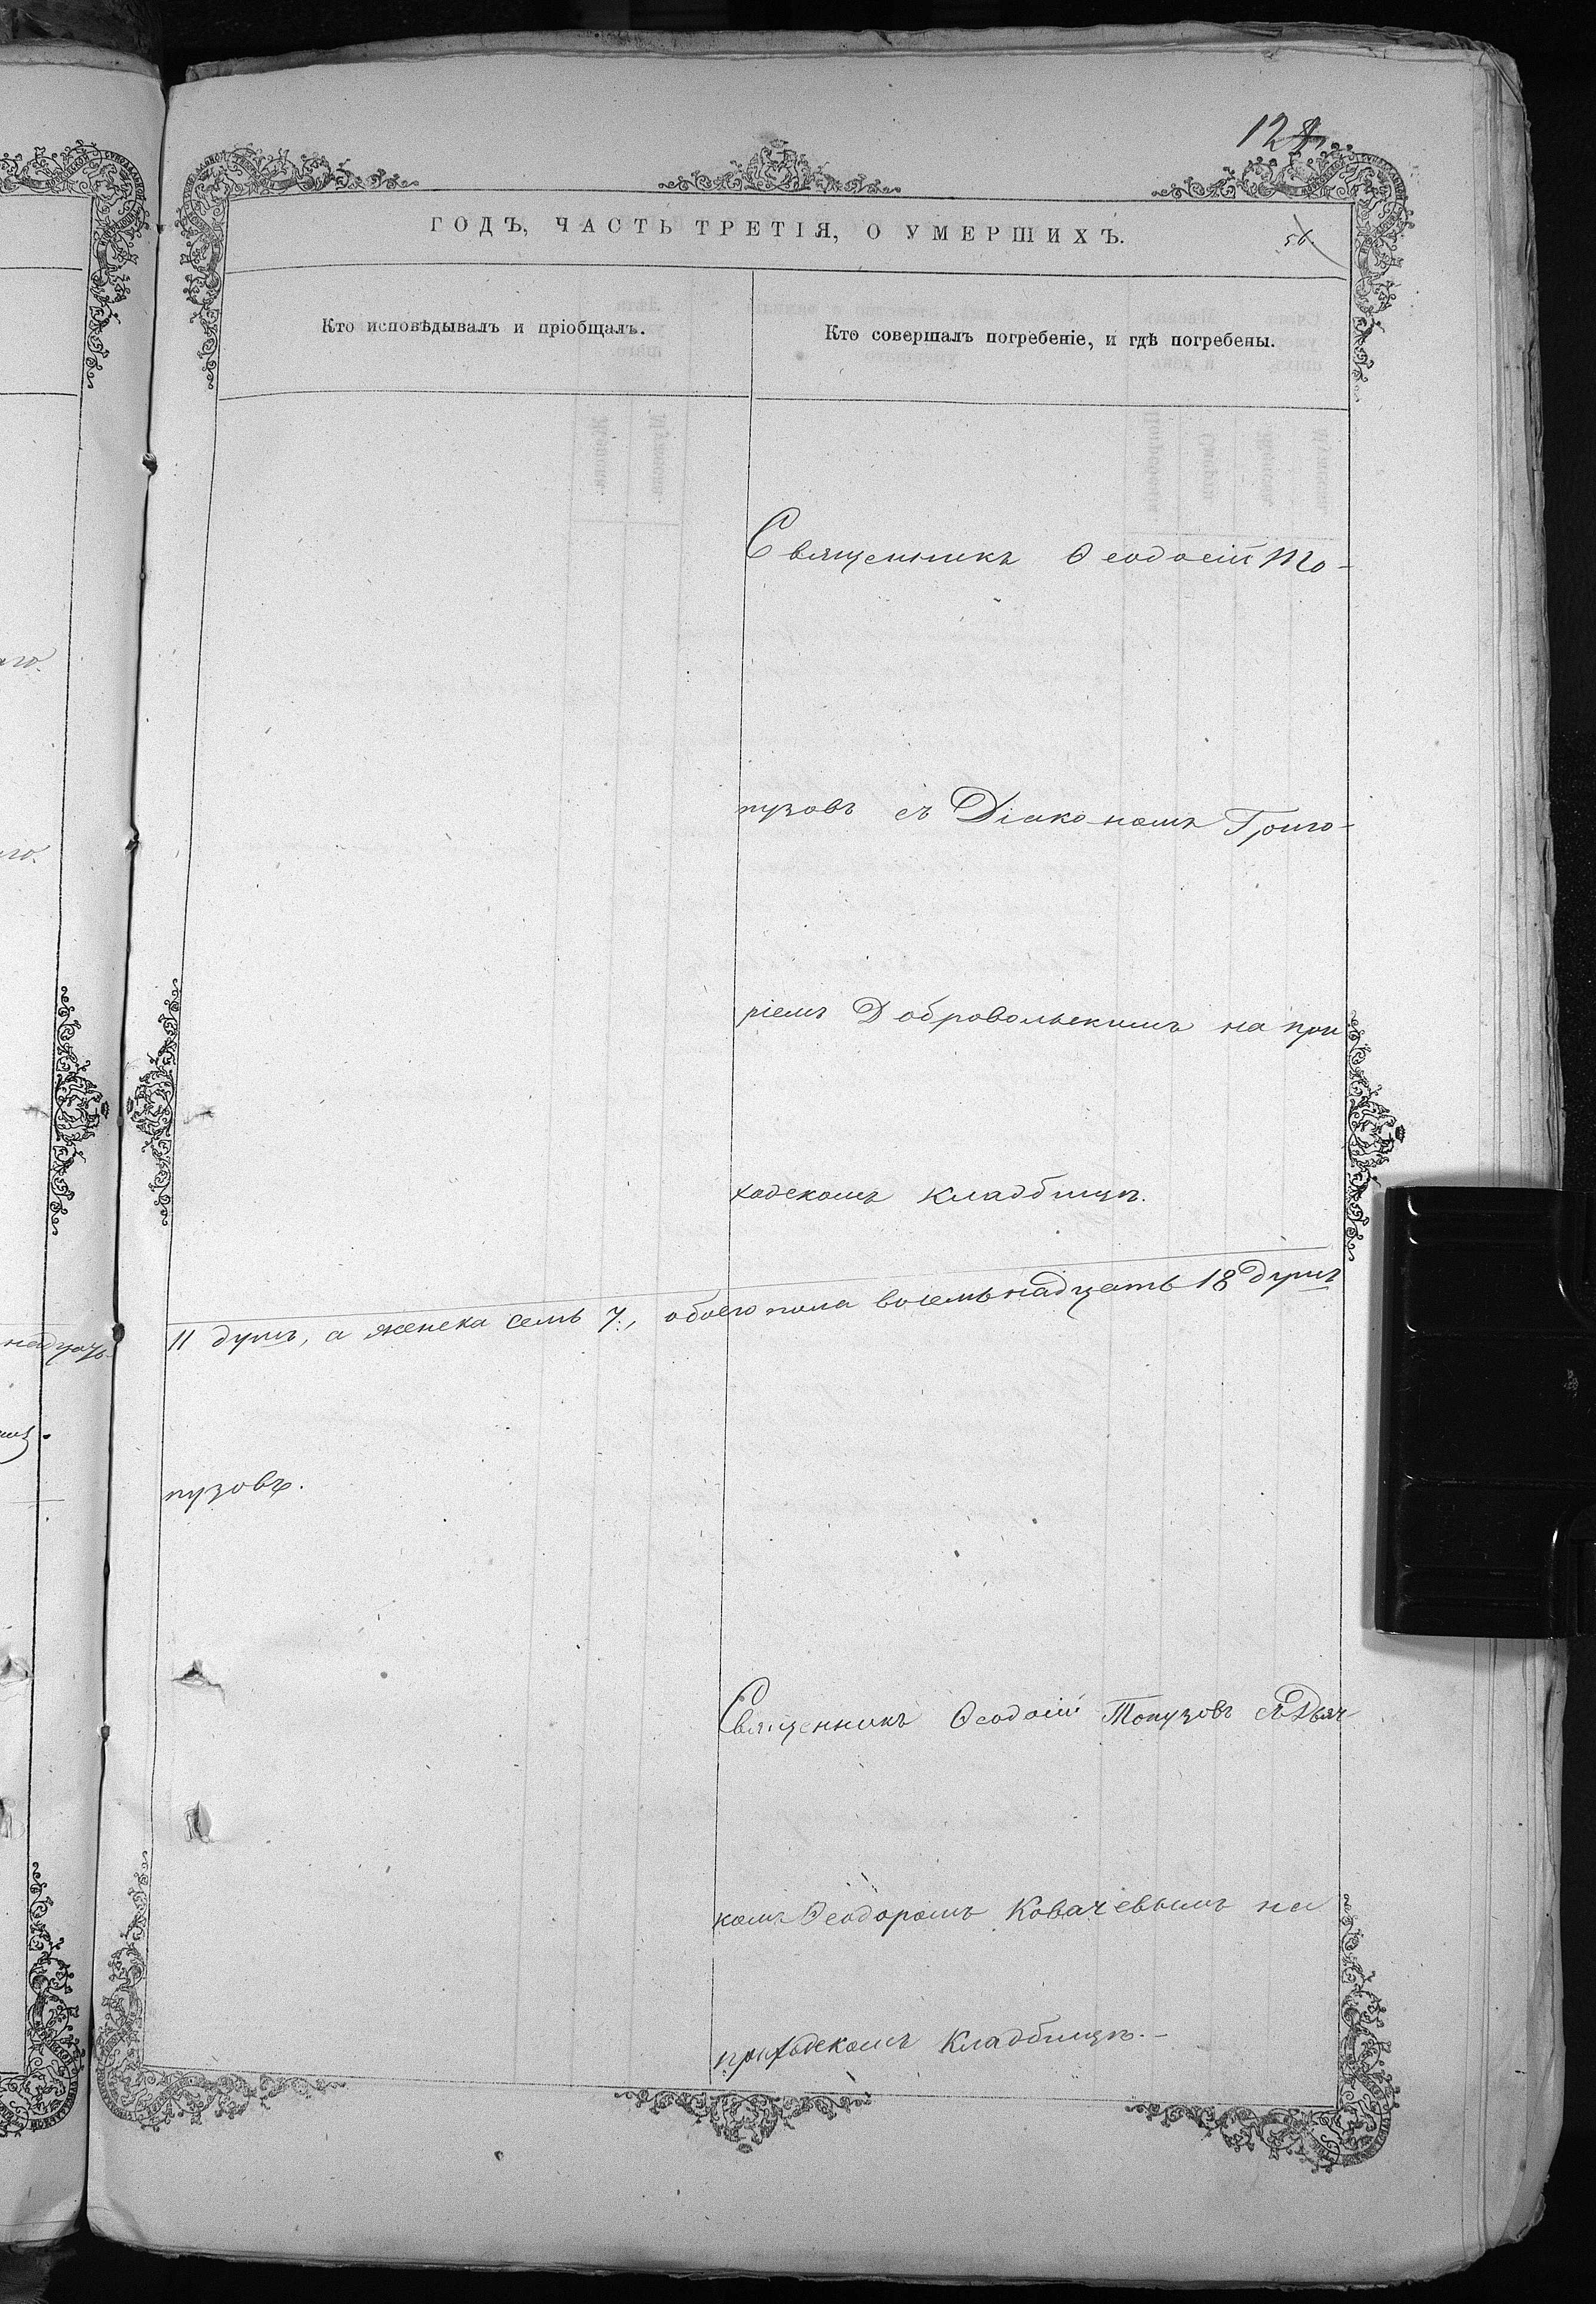 124
ГОДЪ, ЧАСТЬ ТРЕТІЯ, О УМЕРШИХЪ.
56
Кто исповѣдывалъ и пріобщалъ.
Кто совершалъ погребеніе, и гдѣ погребены.
Священникъ Ѳеодосій То-
пузовъ съ Діакономъ Григо-
ріемъ Добровольскимъ на при
ходскомъ кладбищѣ.
11 душъ, а женска семь 7, обоего пола восемьнадцать 18 душъ
пузовъ.
Священникъ Ѳеодосій Топузовъ съ Дьяч
комъ Ѳеодоромъ Ковачевымъ на
приходскомъ кладбищѣ.-
аго.
го.
надцать